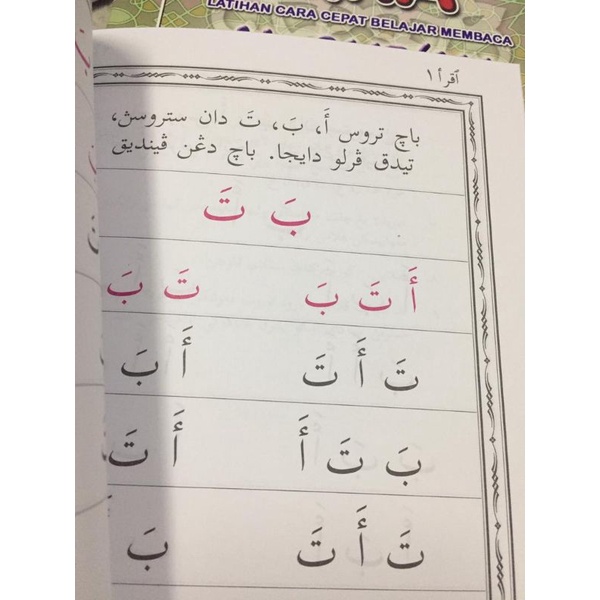 LATIHAN CARA CEPAT BELAJAR MEMBACA
اقرأ ١
باچ تروس أَ، بَ، تَ دان ستروسڽ،
تيدق ڤرلو دايجا. باچ دڠن ڤينديق
بَ تَ
أَ تَ بَ تَ بَ
تَ أَ تَ أَ بَ
بَ تَ أَ أَ تَ
تَ أَ تَ بَ